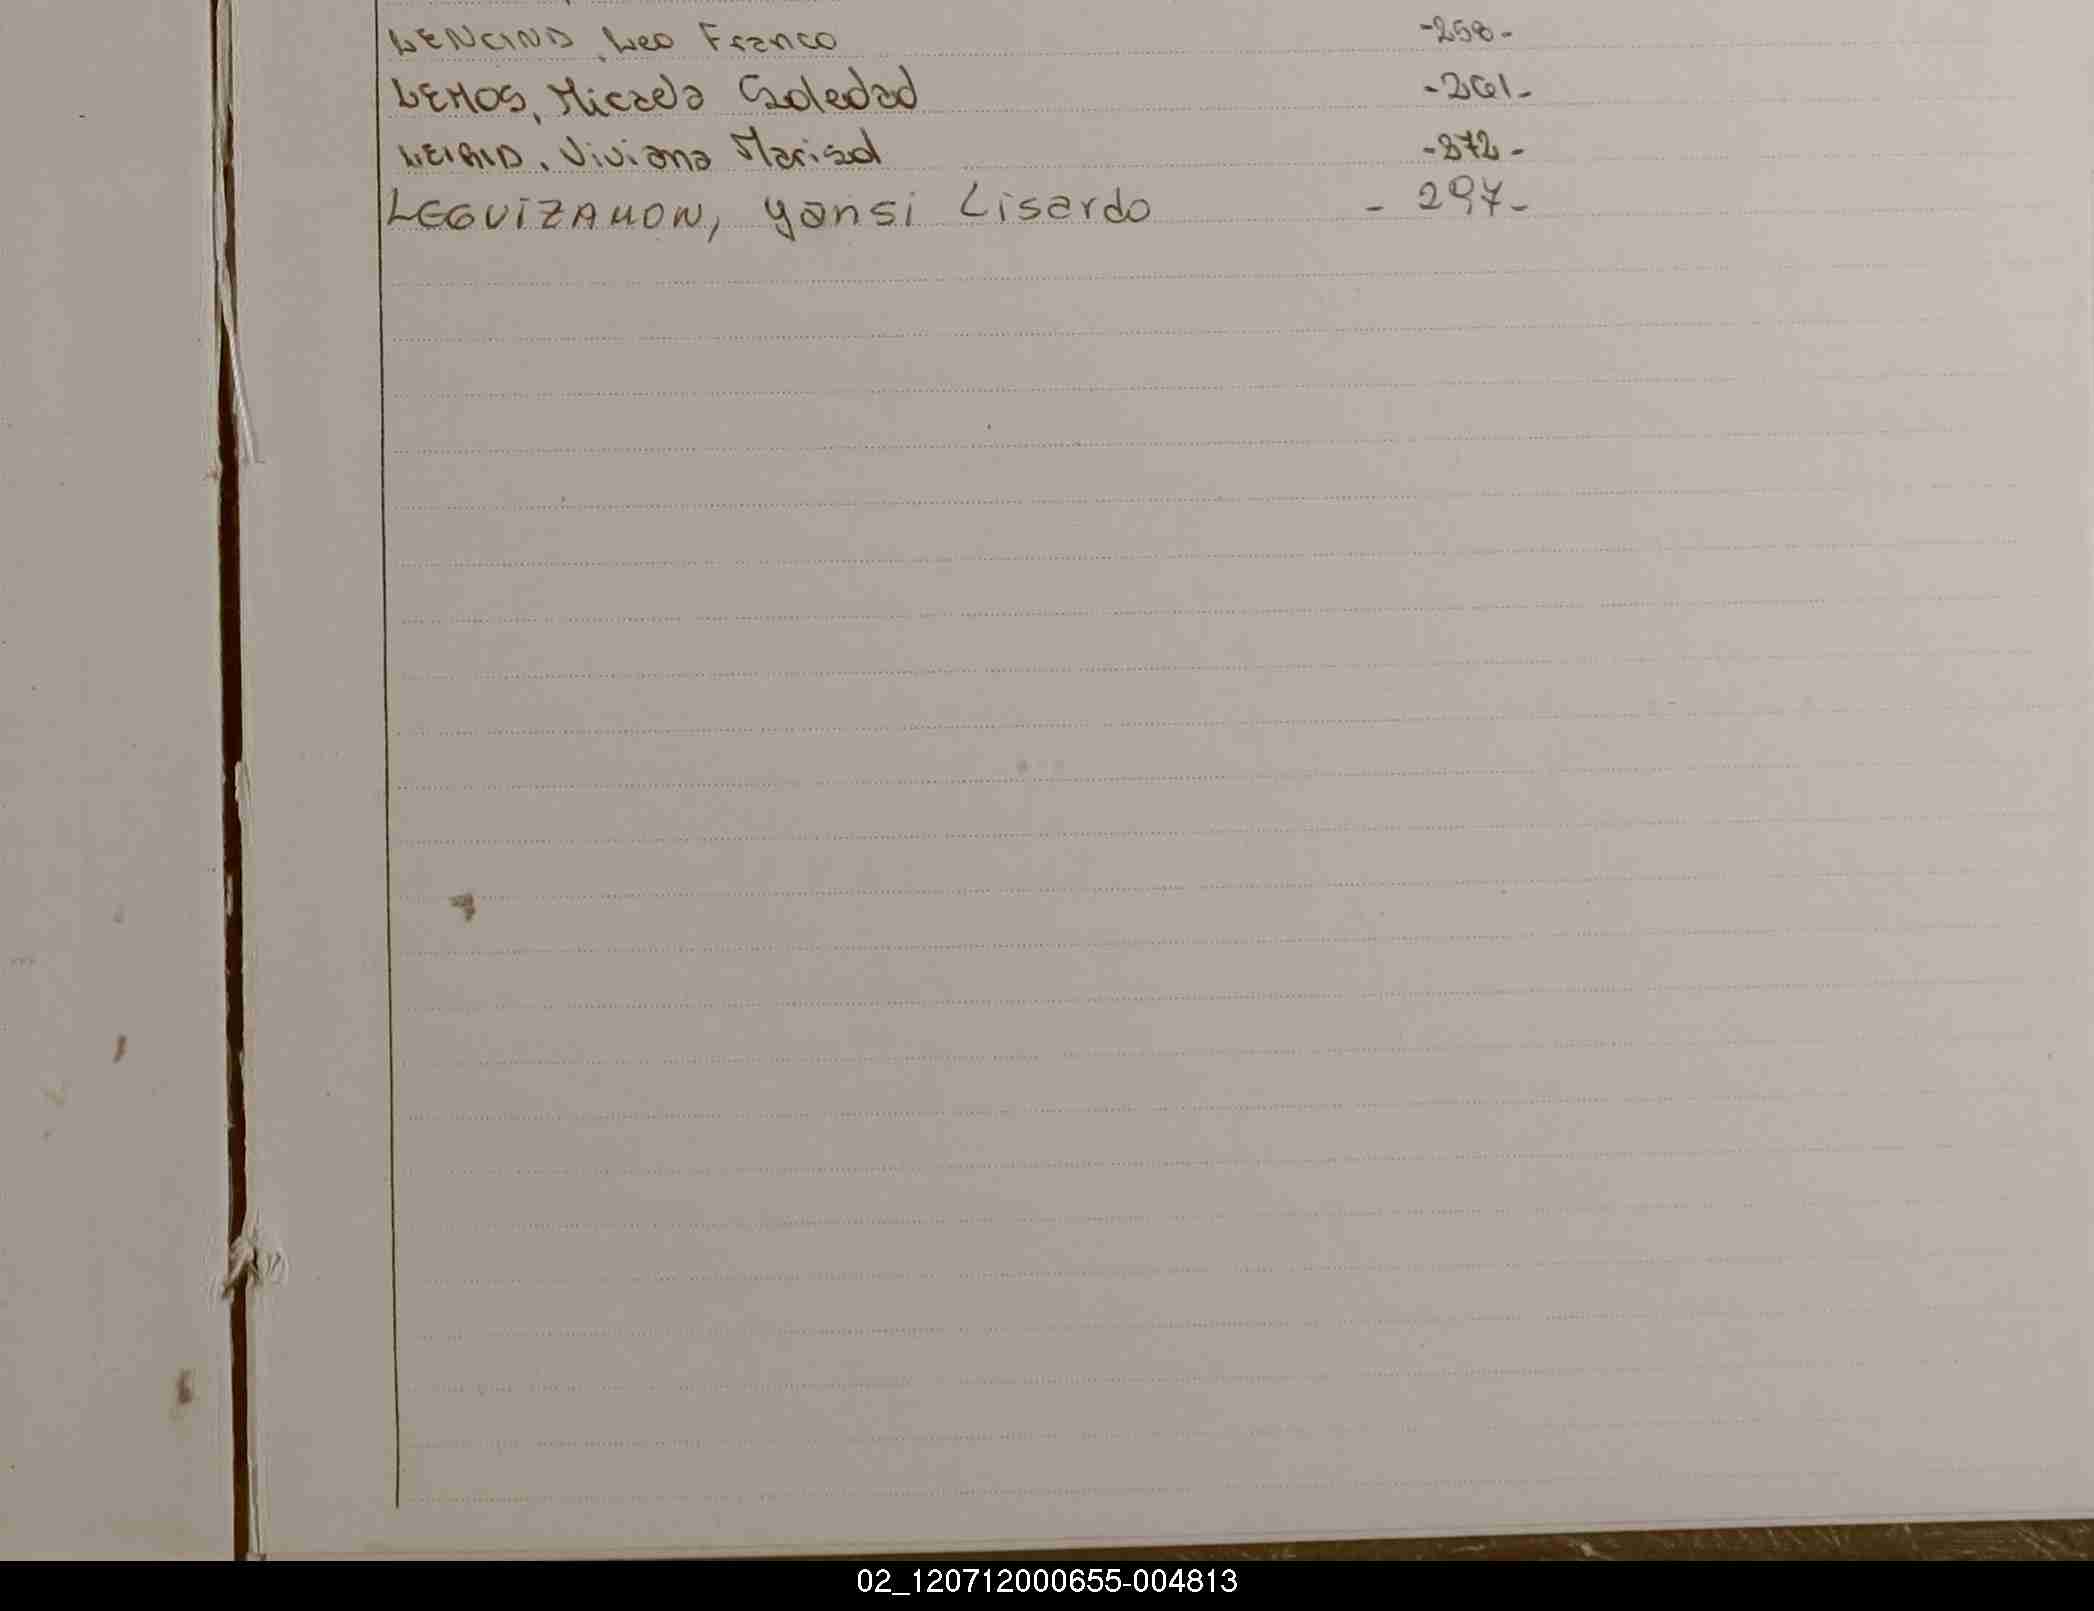 LENCINA, Leo Franco -258-
LEMOS, Micaela Soledad -261-
LEIRIA, Viviana Marisol -272-
LEGUIZAMON, Yansi Lisardo - 297-
02_120712000655-004813